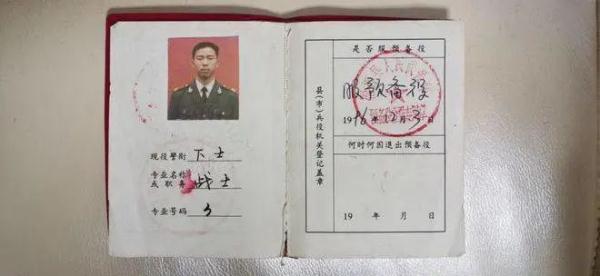 现役警衔 下士
专业名称
或职务 战士
专业号码
是否服预备役
服预备役
1996年12月3日
何时何因退出预备役
19 年 月 日
县(市)兵役机关登记盖章